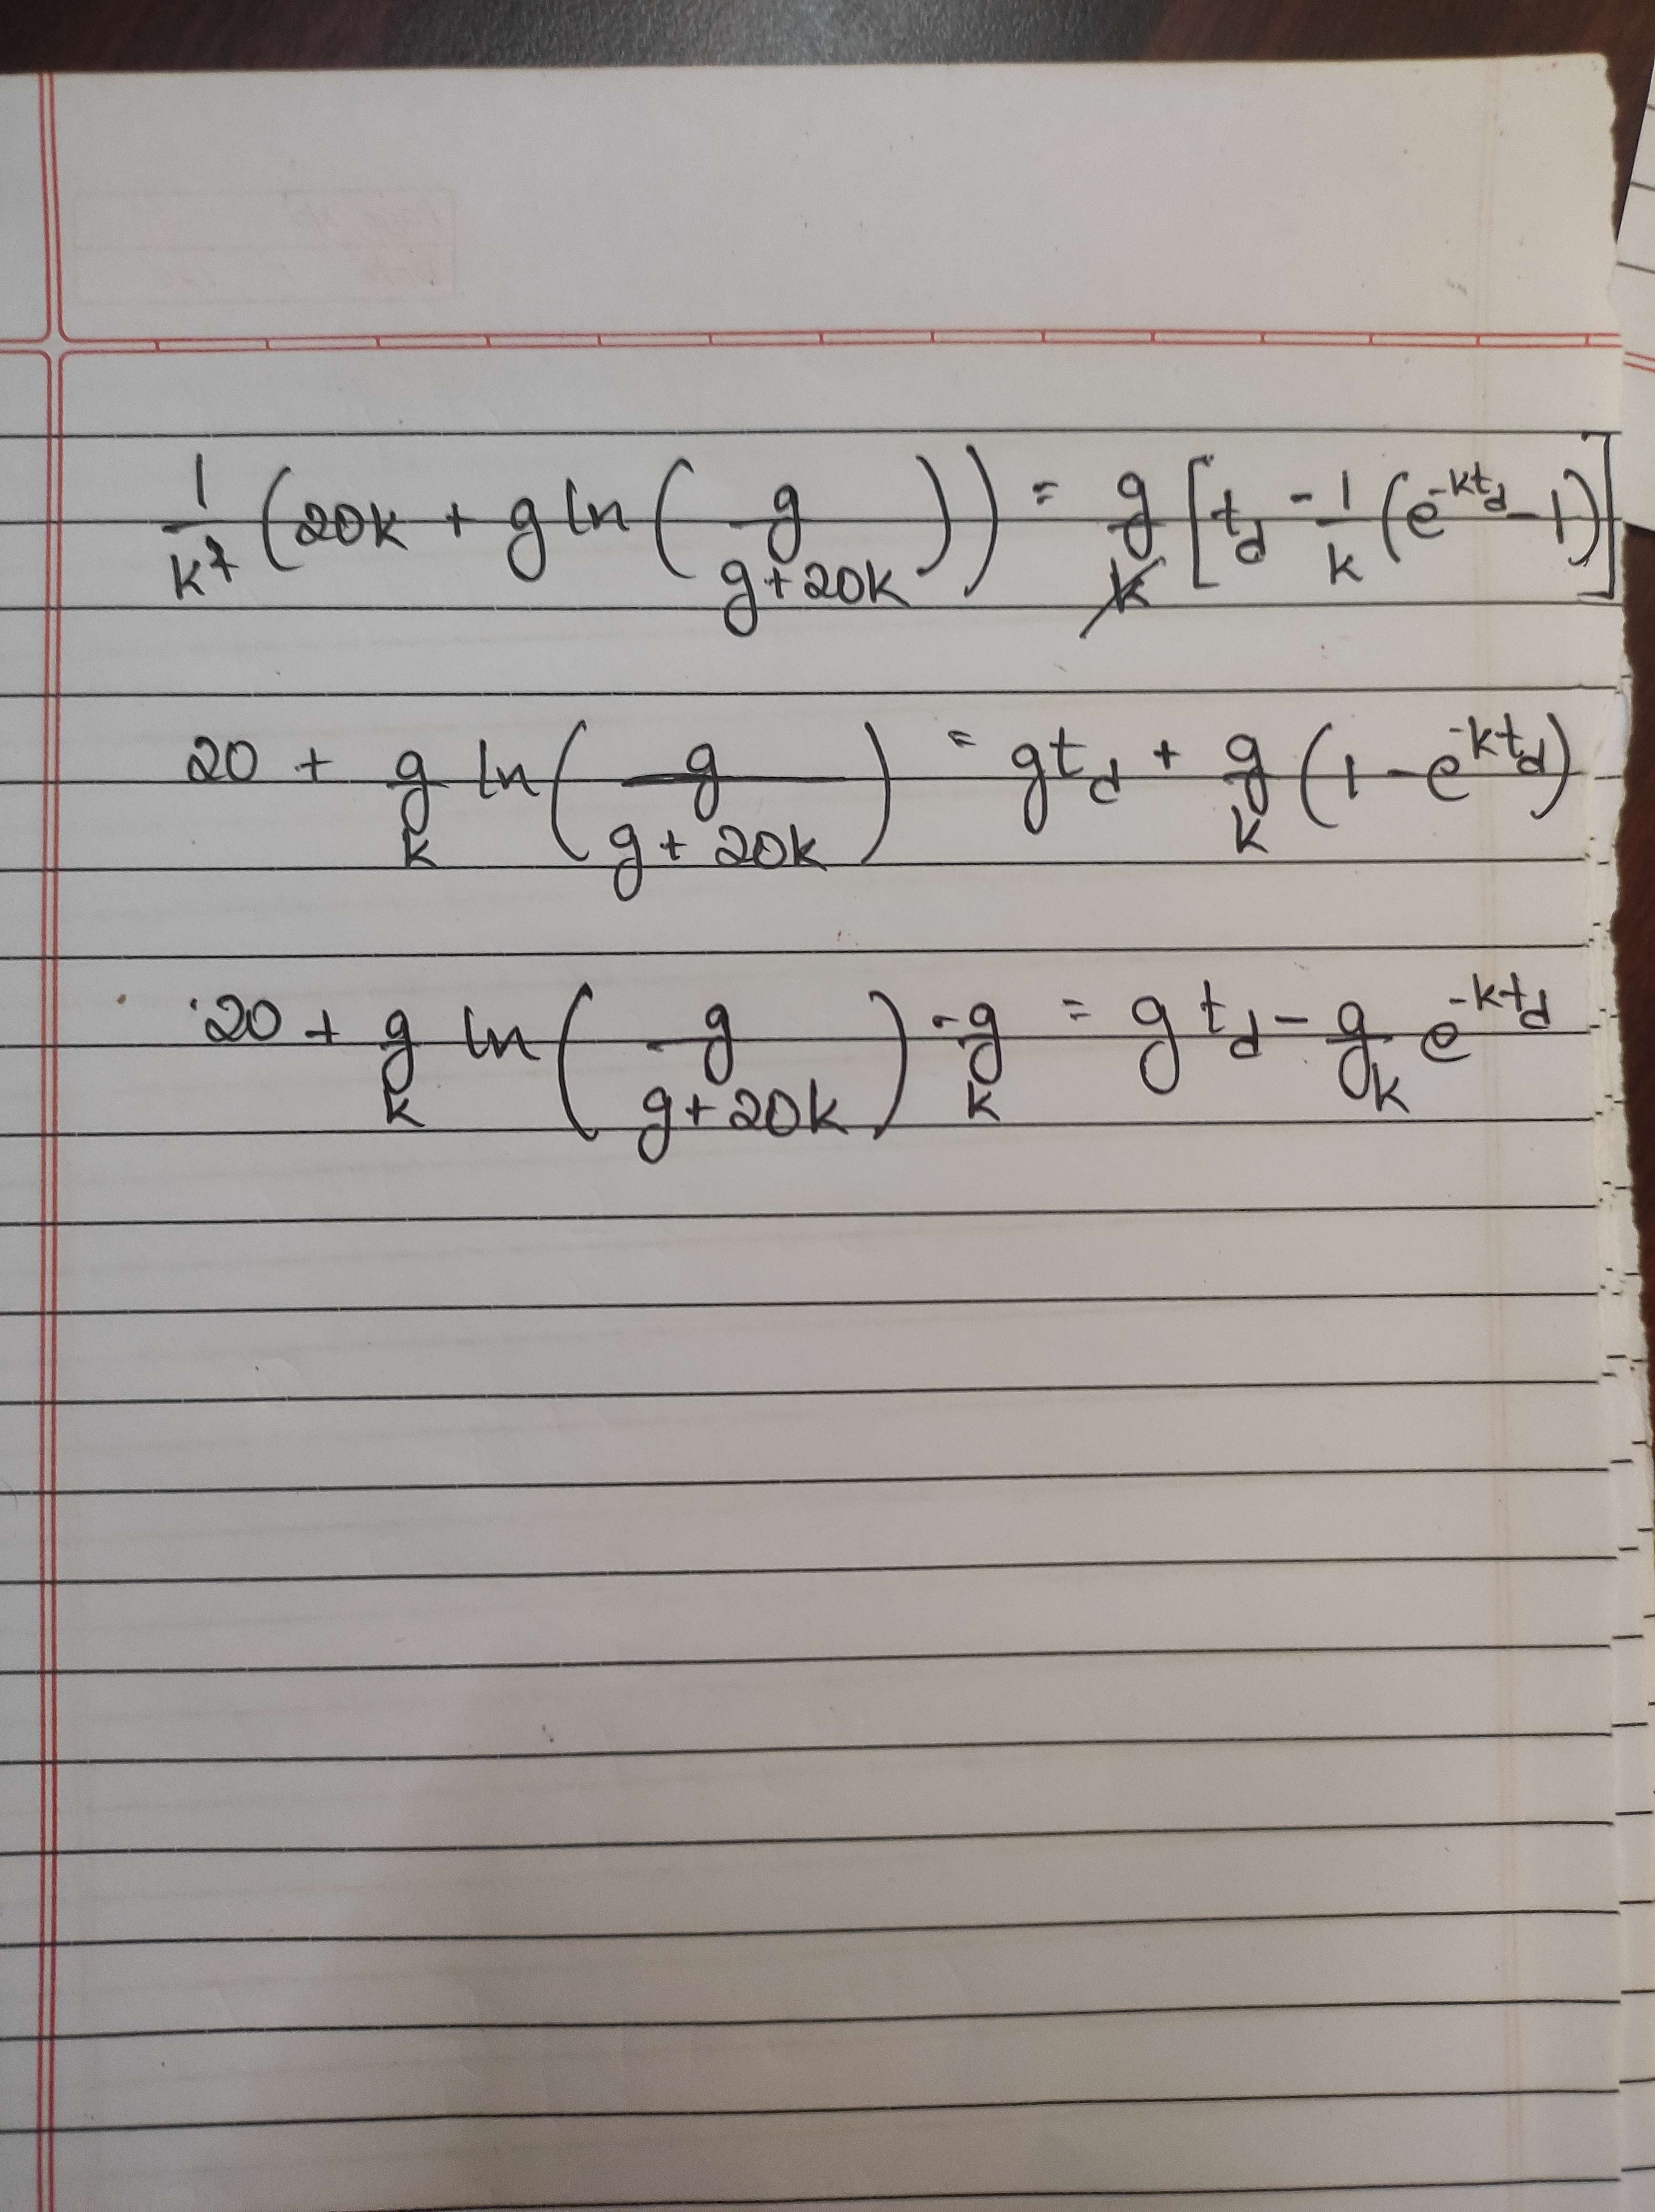 1/k² (20k + g ln (g/(g+20k))) = g/k [t_d - 1/k (e^{-kt_d} - 1)]
20 + g/k ln (g/(g+20k)) = gt_d + g/k (1 - e^{-kt_d})
20 + g/k ln (g/(g+20k)) - g/k = g t_d - g/k e^{-kt_d}